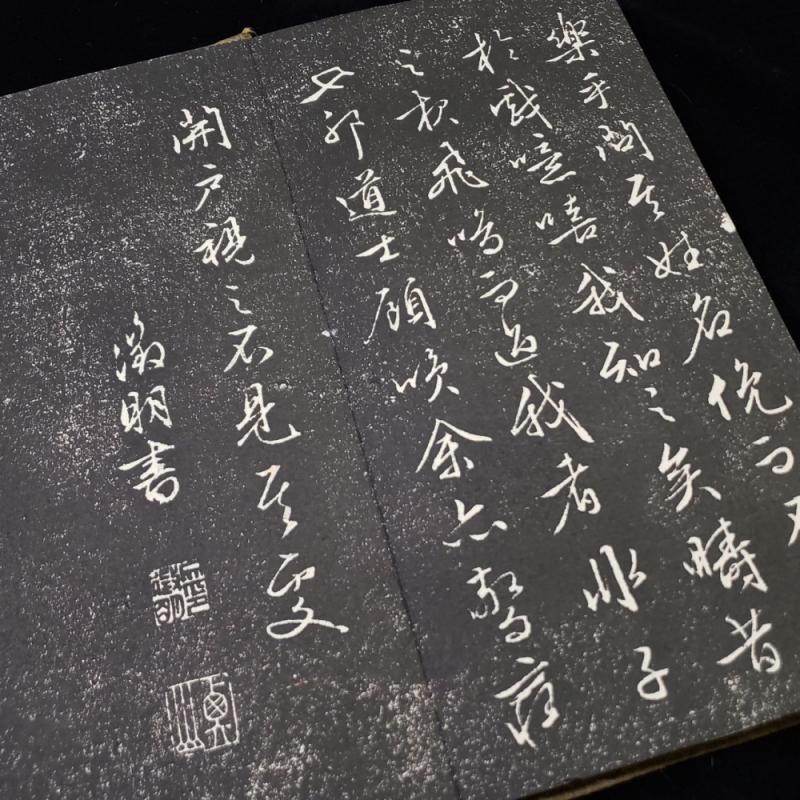 樂乎問其姓名俛而不
於戲噫嘻我知之矣疇昔
之夜飛鳴而過我者非子
也邪道士顧咲余亦驚寤
開戶視之不見其處
徵明書